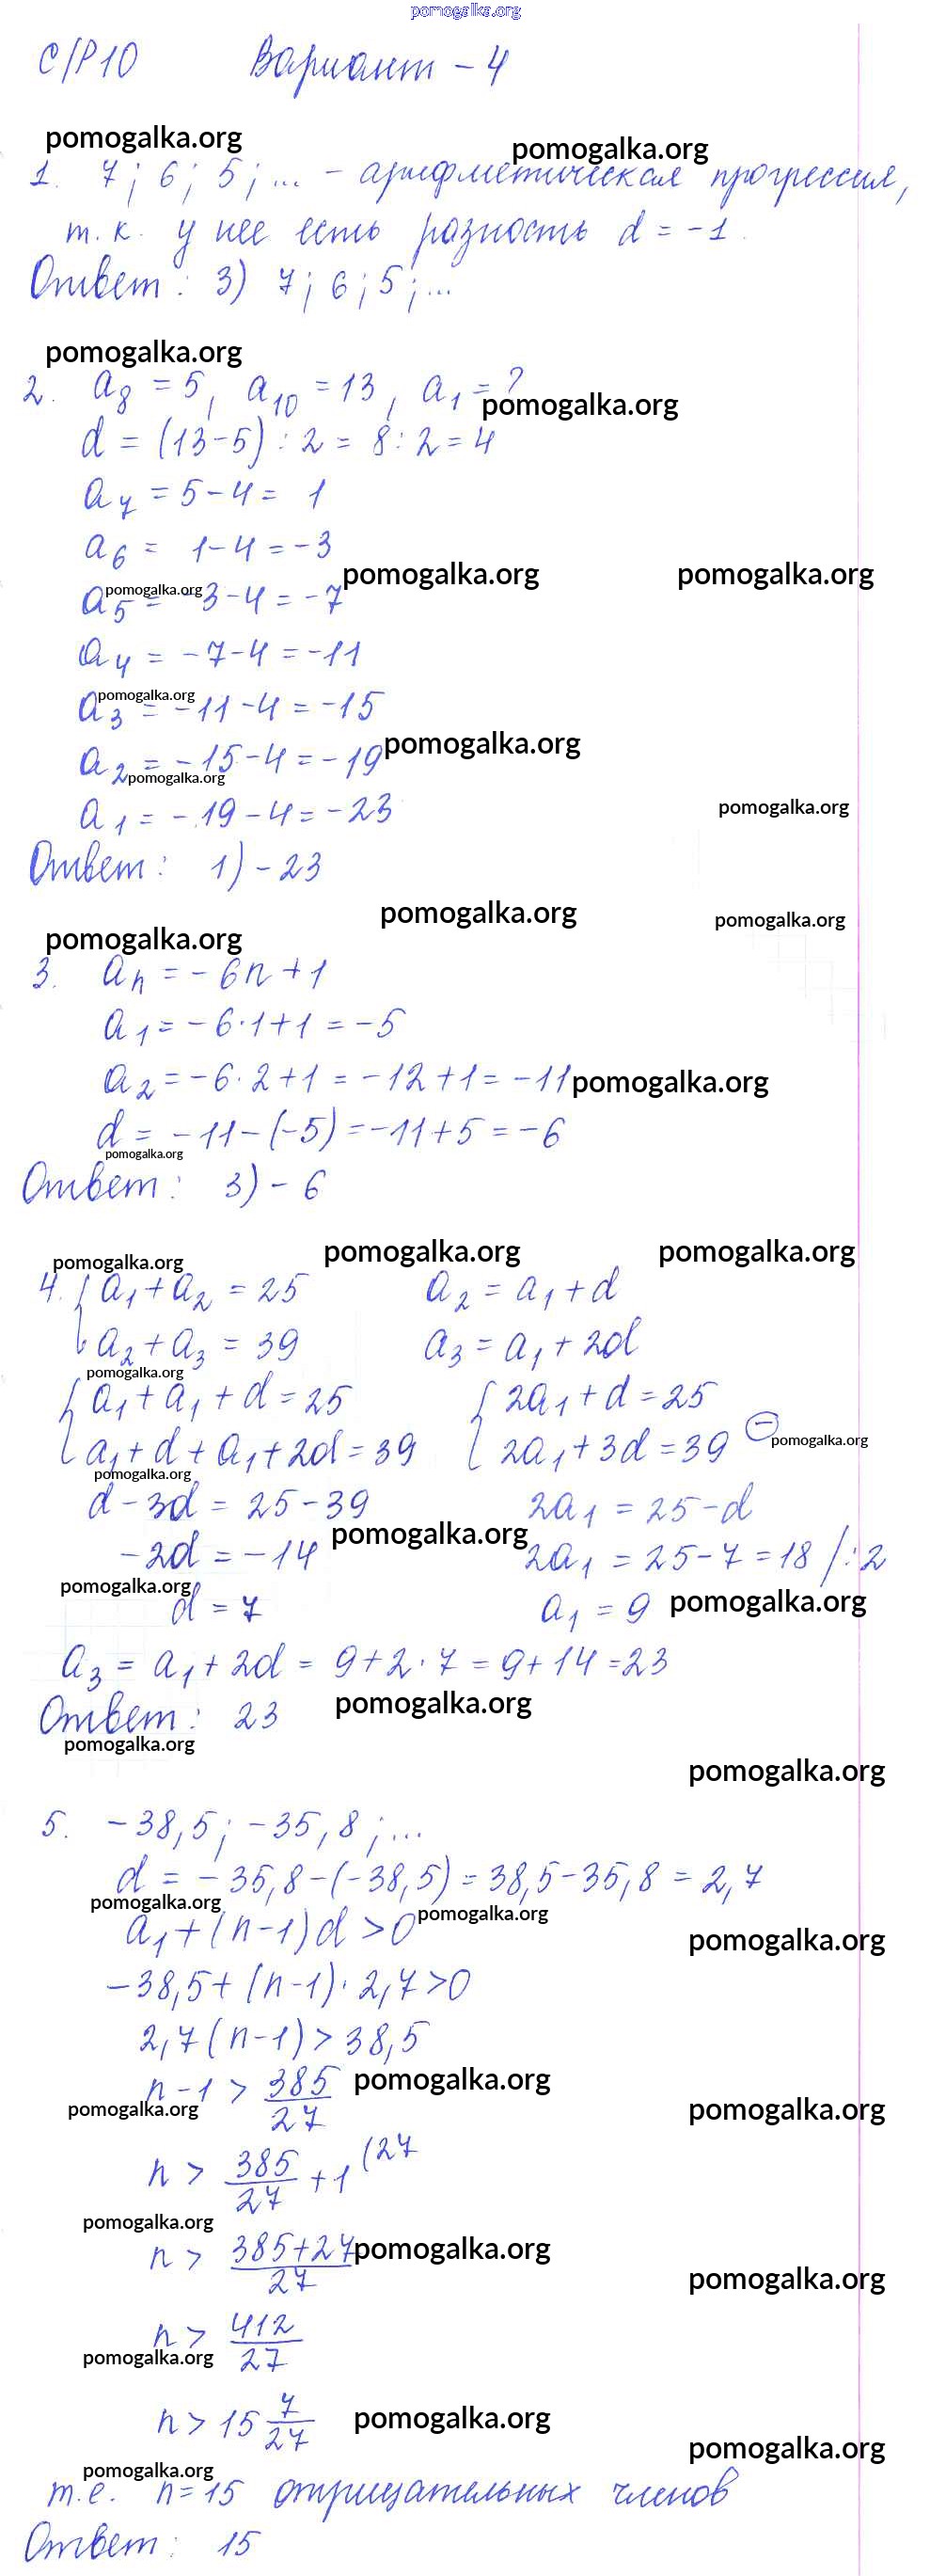 pomogalka.org
С/Р10 Вариант - 4
pomogalka.org pomogalka.org
1. 7; 6; 5; ... - арифметическая прогрессия,
т.к. у нее есть разность d = -1.
Ответ: 3) 7; 6; 5; ...
pomogalka.org
2. a8 = 5, a10 = 13, a1 = ?
pomogalka.org
d = (13-5) : 2 = 8 : 2 = 4
a7 = 5 - 4 = 1
a6 = 1 - 4 = -3
pomogalka.org pomogalka.org
pomogalka.org
a5 = -3 - 4 = -7
a4 = -7 - 4 = -11
pomogalka.org
a3 = -11 - 4 = -15
pomogalka.org
a2 = -15 - 4 = -19
pomogalka.org
pomogalka.org
a1 = -19 - 4 = -23
Ответ: 1) -23
pomogalka.org pomogalka.org
pomogalka.org
3. an = -6n + 1
a1 = -6·1 + 1 = -5
a2 = -6·2 + 1 = -12 + 1 = -11
pomogalka.org
d = -11 - (-5) = -11 + 5 = -6
pomogalka.org
Ответ: 3) -6
pomogalka.org pomogalka.org pomogalka.org
4. { a1 + a2 = 25 a2 = a1 + d
a2 + a3 = 39 a3 = a1 + 2d
pomogalka.org
{ a1 + a1 + d = 25 { 2a1 + d = 25
a1 + d + a1 + 2d = 39 2a1 + 3d = 39 (-)
pomogalka.org
pomogalka.org
d - 3d = 25 - 39 2a1 = 25 - d
pomogalka.org
-2d = -14 2a1 = 25 - 7 = 18 /:2
pomogalka.org
d = 7 a1 = 9
pomogalka.org
a3 = a1 + 2d = 9 + 2·7 = 9 + 14 = 23
Ответ: 23
pomogalka.org
pomogalka.org
pomogalka.org
5. -38,5; -35,8; ...
d = -35,8 - (-38,5) = 38,5 - 35,8 = 2,7
pomogalka.org pomogalka.org
a1 + (n-1)d > 0
pomogalka.org
-38,5 + (n-1)·2,7 > 0
2,7(n-1) > 38,5
n - 1 > 385/27
pomogalka.org
pomogalka.org pomogalka.org
n > 385/27 + 1 (27
pomogalka.org
n > 385+27/27
pomogalka.org
pomogalka.org
n > 412/27
pomogalka.org
n > 15 7/27
pomogalka.org
pomogalka.org
pomogalka.org
т.е. n = 15 отрицательных членов
Ответ: 15